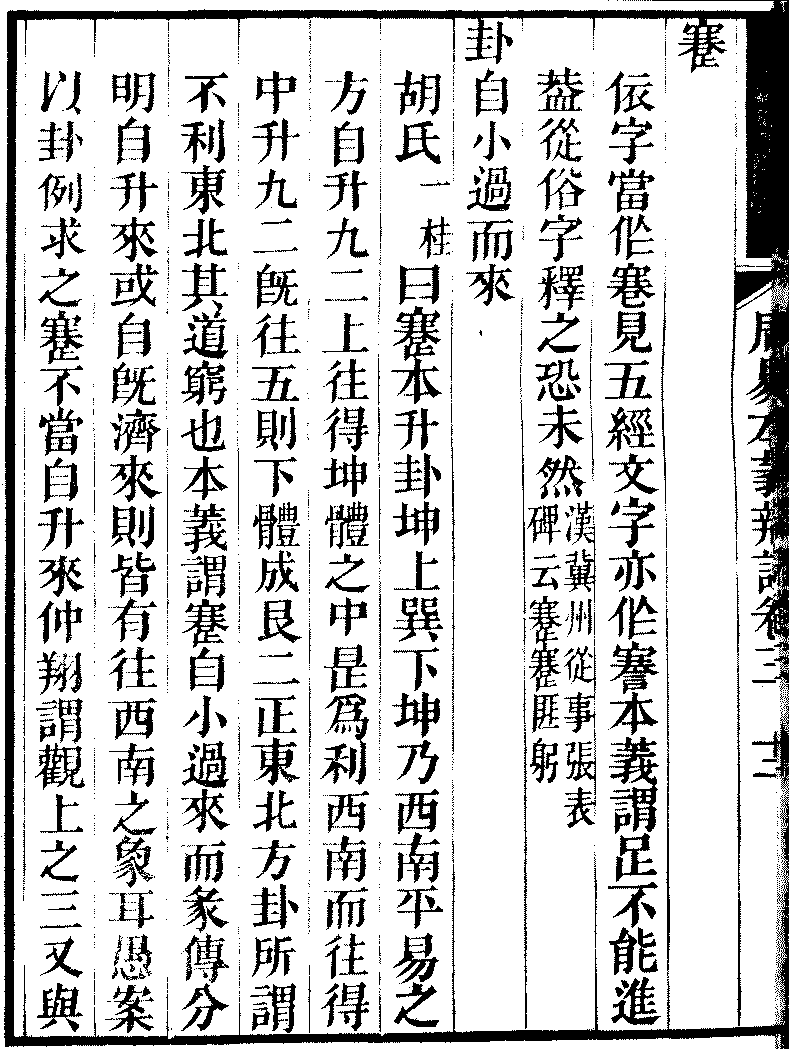 周易本義辨證卷三
蹇
依字當作寋見五經文字亦作謇本義謂足不能進
葢從俗字釋之恐未然漢冀州從事張表
碑云蹇蹇匪躬
卦自小過而來
胡氏一桂曰蹇本升卦坤上巽下坤乃西南平易之
方自升九二上往得坤體之中是爲利西南而往得
中升九二旣往五則下體成艮二正東北方卦所謂
不利東北其道窮也本義謂蹇自小過來而彖傳分
明自升來或自旣濟來則皆有往西南之象耳愚案
以卦例求之蹇不當自升來仲翔謂觀上之三又與